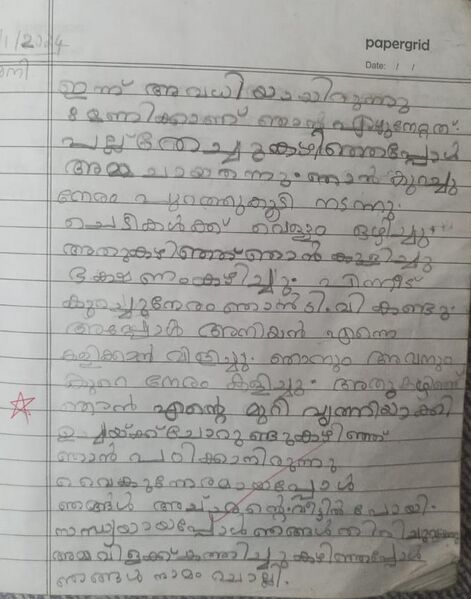 /1/2024
papergrid
Date: / /
നി
ഇന്ന് അവധിയായിരുന്നു
8 മണിക്കാണ് ഞാൻ എഴുന്നേറ്റത്.
പല്ല് തേച്ചുകഴിഞ്ഞപ്പോൾ
അമ്മ ചായതന്നു. ഞാൻ കുറച്ചു
നേരം പുറത്തുകൂടി നടന്നു.
ചെടികൾക്ക് വെള്ളം ഒഴിച്ചു
അതുകഴിഞ്ഞ് ഞാൻ കുളിച്ചു
ഭക്ഷണംകഴിച്ചു. പിന്നീട്
കുറച്ചുനേരം ഞാൻ ടി.വി കണ്ടു.
അപ്പോൾ അനിയൻ എന്നെ
കളിക്കാൻ വിളിച്ചു. ഞാനും അവനും
കുറെ നേരം കളിച്ചു. അതുകഴിഞ്ഞ്
ഞാൻ എന്റെ മുറി വൃത്തിയാക്കി
ഉച്ചയ്ക്ക് ചോറുണ്ടുകഴിഞ്ഞ്
ഞാൻ പഠിക്കാനിരുന്നു
വൈകുന്നേരമായപ്പോൾ
ഞങ്ങൾ അച്ഛന്റെ വീട്ടിൽ പോയി.
സന്ധ്യയായപ്പോൾ ഞങ്ങൾ തിരിച്ചുവന്നു
അമ്മവിളക്ക് കത്തിച്ചു കഴിഞ്ഞപ്പോൾ
ഞങ്ങൾ നാമം ചൊല്ലി.